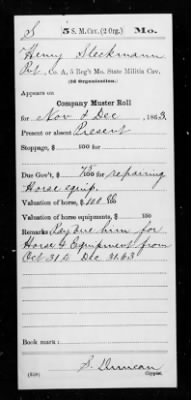 S 5 S. M. Cav. (2 Org.) Mo.
Henry Sleckmann
Pvt, Co. A, 5 Reg't Mo. State Militia Cav.
(2d Organization.)
Appears on
Company Muster Roll
for Nov & Dec, 1863.
Present or absent Present
Stoppage, $ 100 for
Due Gov't, $ 75/100 for repairing
Horse equip.
Valuation of horse, $ 100
Valuation of horse equipments, $ 100
Remarks Pay due him for
Horse & Equipment from
Oct 31 to Dec 31.63
Book mark:
S. Duncan
(858) Copyist.